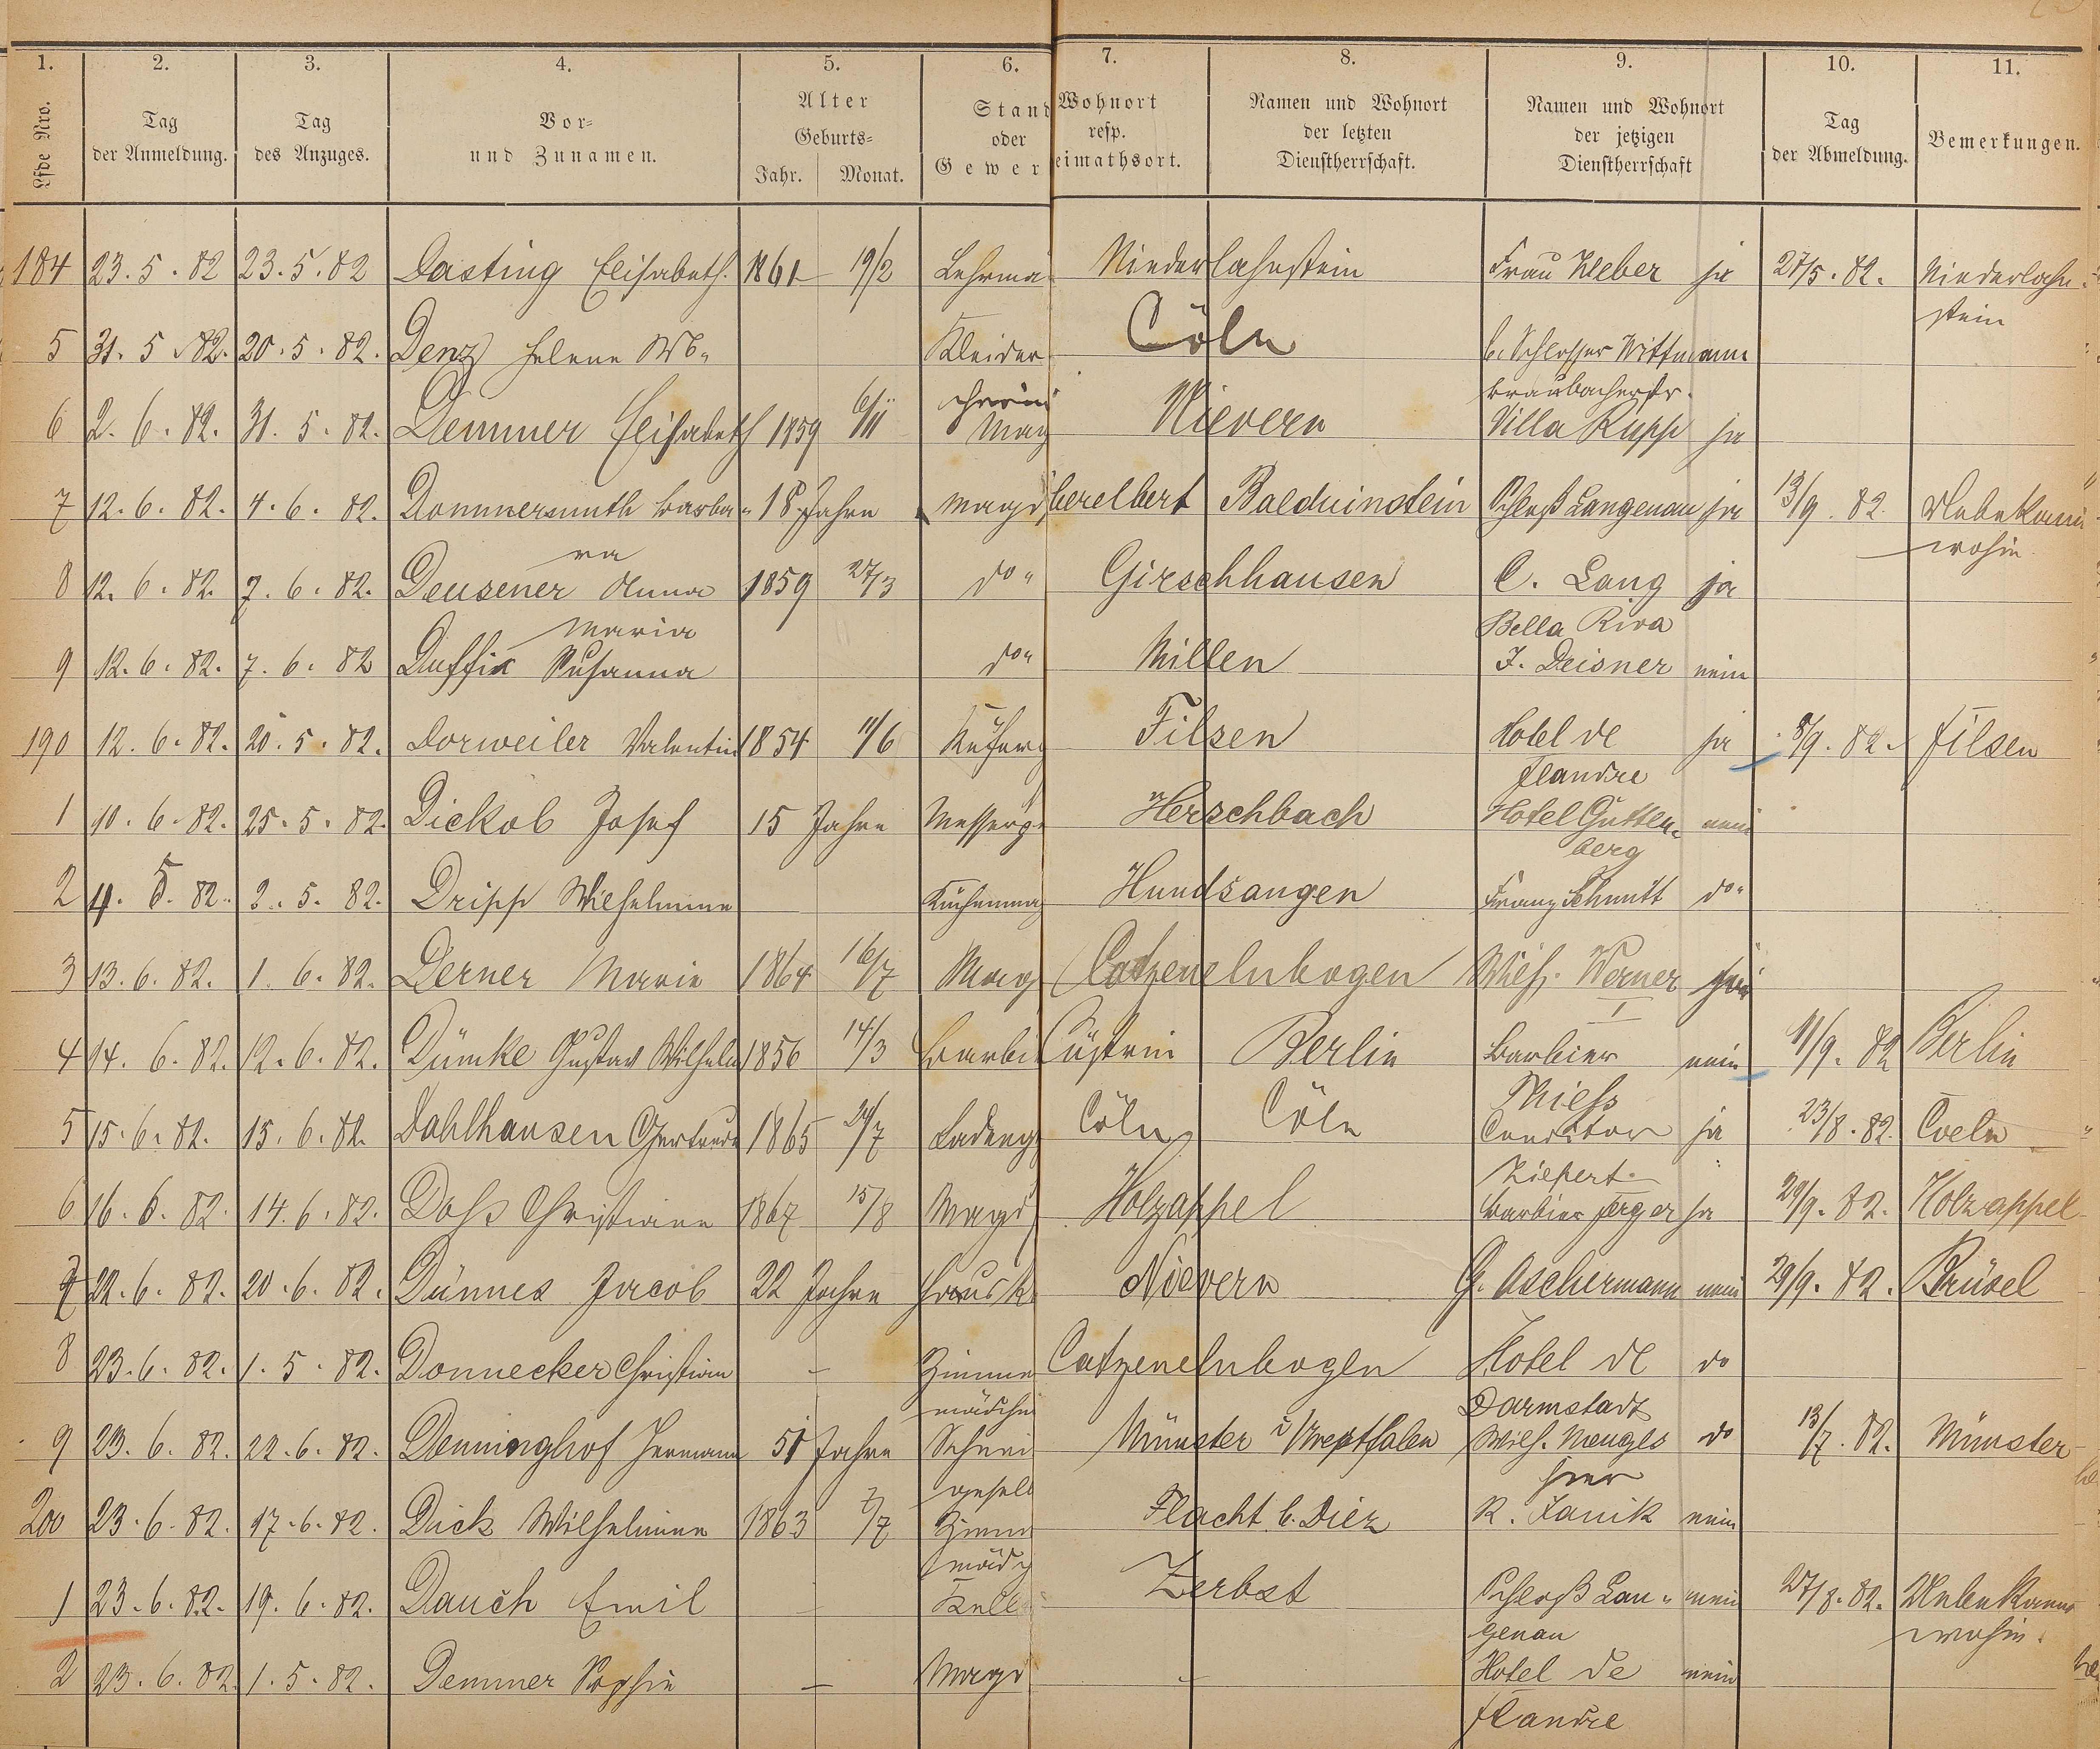 1. 2. 3. 4. 5. 6. 7. 8. 9. 10. 11.
Lfde Nro. Tag der Anmeldung. Tag des Anzuges. Vor- und Zunamen. Alter Geburts- Jahr. Monat. Stand oder Gewer Wohnort resp. eimathsort. Namen und Wohnort der letzten Dienstherrschaft. Namen und Wohnort der jetzigen Dienstherrschaft Tag der Abmeldung. Bemerkungen.
184 23.5.82 23.5.82 Dasting Elisabeth. 1861 19/2 Lehrmä Niederlahnstein Frau Weber ja 27/5.82. Niederlahn-
stein
5 31.5.82. 20.5.82. Denz Helene Wb. Kleider Cöln b. Schlosser Wittmann
Braubacherstr.
6 2.6.82. 31.5.82. Demmer Elisabeth 1859 6/11 Mag Nievern Villa Rupp ja
7 12.6.82. 4.6.82. Dommermuth Barba- 18 Jahre Magd berelbert Balduinstein Schloß Langenau ja 13/9.82. Unbekannt
ra wohin
8 12.6.82. 7.6.82. Deusener Anna 1859 27/3 do Girschhausen C. Lang ja
Maria Bella Riva
9 12.6.82. 7.6.82 Duffix Susanna do Millen J. Deisner nein
190 12.6.82. 20.5.82. Dorweiler Valentin 1854 11/6 Küfer Filsen Hotel de ja 8/9.82. Filsen
Flandre
1 10.6.82. 25.5.82. Dickob Josef 15 Jahre Messerp Herschbach Hotel Gutten- nein
berg
2 11.5.82. 2.5.82. Dripp Wilhelmine Küchenmag Hundsangen Franz Schmitt do
3 13.6.82. 1.6.82. Derner Marie 1864 16/7 Mag Catzenelnbogen Wilh. Werner
I
4 14.6.82. 12.6.82. Dümke Gustav Wilhelm 1856 14/3 Barbi Cüstrin Berlin Barbier nein 11/9.82 Berlin
5 15.6.82. 15.6.82. Dahlhausen Gertrude 1865 24/7 Ladeng Cöln Cöln Conditor ja 23/8.82. Coeln
6 16.6.82. 14.6.82. Doß Christiane 1867 15/8 Magd Holzappel Barbier ja 29/9.82. Holzappel
7 22.6.82. 20.6.82. Dünnes Jacob 22 Jahre Hausk Nievern G. Aschermann nein 29/9.82. Brüsel
8 23.6.82. 1.5.82. Donnecker Christian – Zimme Catzenelnbogen Hotel de do
mädche Darmstadt
9 23.6.82. 22.6.82. Denninghof Hermann 51 Jahre Schnei Münster i Westfalen Wilh. Menges do 13/7.82. Münster
gesell hier
200 23.6.82. 17.6.82. Dick Wilhelmine 1863 2/7 Zimm Flacht b. Diez R. Janik nein
mädg
1 23.6.82. 19.6.82. Dauch Emil – Kell Zerbst Schloß Lan- nein 27/8.82. Unbekannt
genau wohin.
2 23.6.82. 1.5.82. Demmer Sophie – Magd – Hotel de nein
Flandre